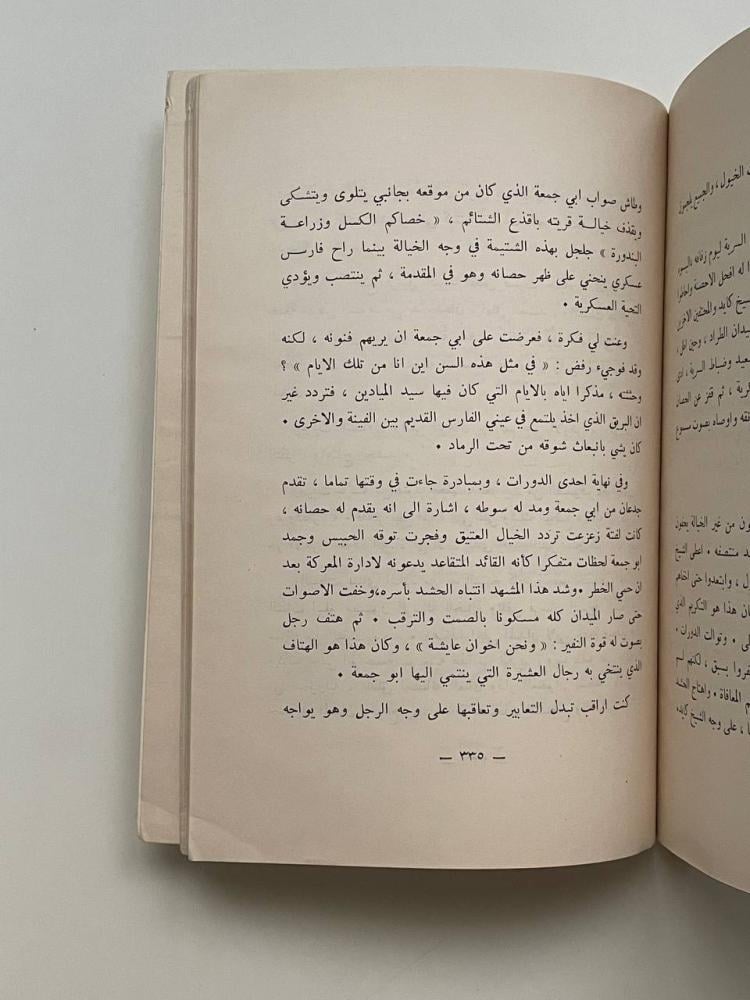 وطاش صواب ابي جمعة الذي كان من موقعه بجانبي يتلوى ويتشكى
ويقذف خيالة قريته باقذع الشتائم ، « خصاكم الكسل وزراعة
البندورة » جلجل بهذه الشتيمة في وجه الخيالة بينما راح فارس
عسكري ينحني على ظهر حصانه وهو في المقدمة ، ثم ينتصب ويؤدي
التحية العسكرية .
وعنت لي فكرة ، فعرضت على ابي جمعة ان يريهم فنونه ، لكنه
وقد فوجيء رفض : « في مثل هذه السن اين انا من تلك الايام » ؟
وحثثته ، مذكرا اياه بالايام التي كان فيها سيد الميادين ، فتردد غير
ان البريق الذي اخذ يلتمع في عيني الفارس القديم بين الفينة والاخرى .
كان يشي بانبعاث شوقه من تحت الرماد .
وفي نهاية احدى الدورات ، وبمبادرة جاءت في وقتها تماما ، تقدم
جدعان من أبي جمعة ومد له سوطه ، اشارة الى انه يقدم له حصانه ،
كانت لفتة زعزعت تردد الخيال العتيق وفجرت توقه الحبيس وجمد
ابو جمعة لحظات متفكرا كأنه القائد المتقاعد يدعونه لادارة المعركة بعد
ان حمي الخطر . وشد هذا المشهد انتباه الحشد بأسره، وخفت الاصوات
حتى صار الميدان كله مسكونا بالصمت والترقب . ثم هتف رجل
بصوت له قوة النفير : « ونحن اخوان عايشة » ، وكان هذا هو الهتاف
الذي ينتخي به رجال العشيرة التي ينتمي اليها ابو جمعة .
كنت اراقب تبدل التعابير وتعاقبها على وجه الرجل وهو يواجه
— ٣٣٥ —
الخيول ، والجميع
السرية ليوم زفافه
ميدان الطراد ، وحين
وضباط السرية ،
ثم قفز عن الحصان
واوصاه بصوت مسموع
من غير الخيالة
منتصفه . اعطى الشيخ
، وابتعدوا حتى
هذا هو التكريم الذي
. وتوالت الدورات .
بسبق ، لكنهم لم
المعافاة . واهتاج الحشد
، على وجه الشيخ كايد